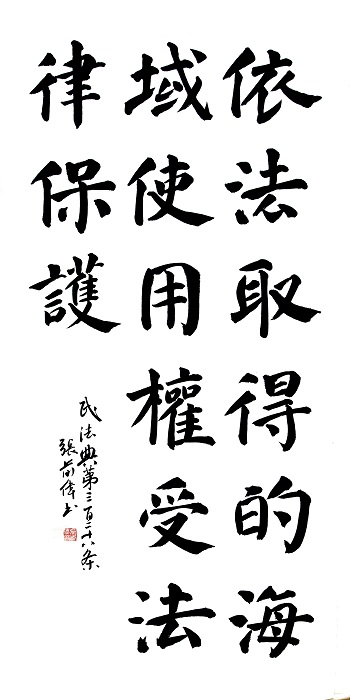 依法取得的海
域使用權受法
律保護
民法典第三百二十八条
張前偉书